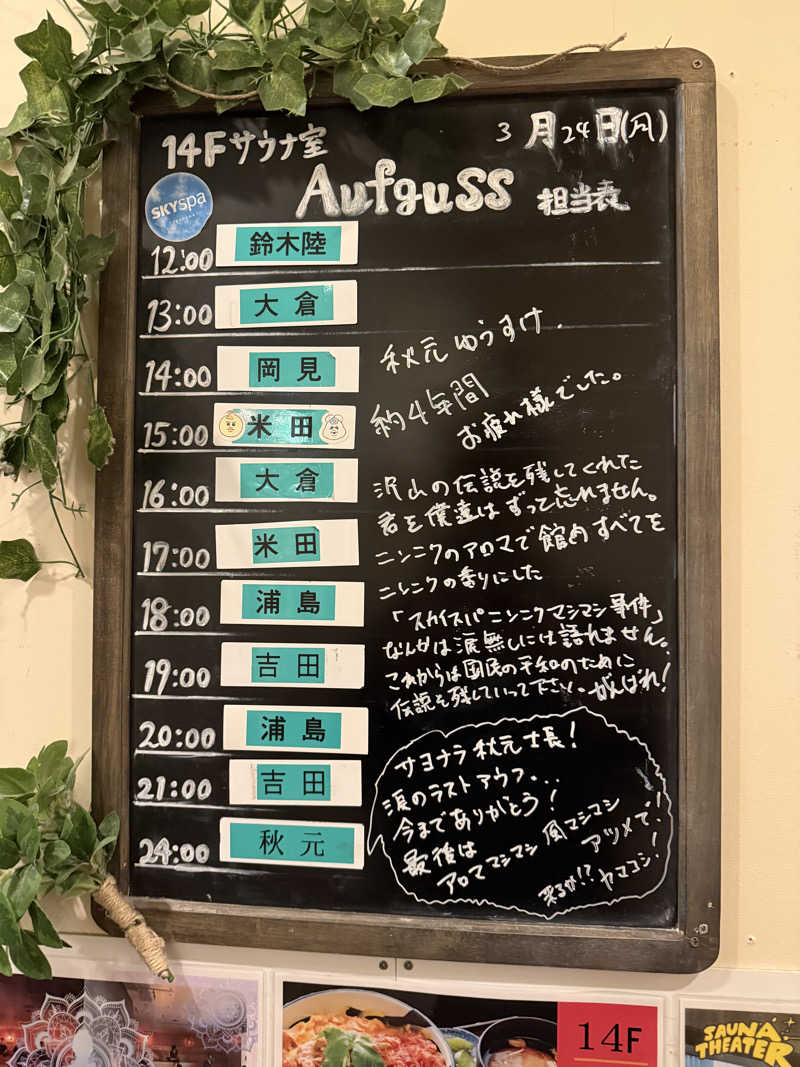 14Fサウナ室
3月24日(月)
Aufguss 担当表
SKYspa
12:00 鈴木陸
13:00 大倉
14:00 岡見
15:00 米田
16:00 大倉
17:00 米田
18:00 浦島
19:00 吉田
20:00 浦島
21:00 吉田
24:00 秋元
秋元ゆうすけ.
約4年間
お疲れ様でした。
沢山の伝説を残してくれた
君を僕達はずっと忘れません。
ニンニクのアロマで館内すべてを
ニンニクの香りにした
「スカイスパニンニクマシマシ事件」
なんかは涙無しには語れません。
これからは国民の平和のために
伝説を残していって下さい。がんばれ!
サヨナラ秋元士長!
涙のラストアウフ...
今までありがとう!
最後は
アロママシマシ 風マシマシ
アツメで!
来るか!?ヤマコシ!
14F
SAUNA
THEATER